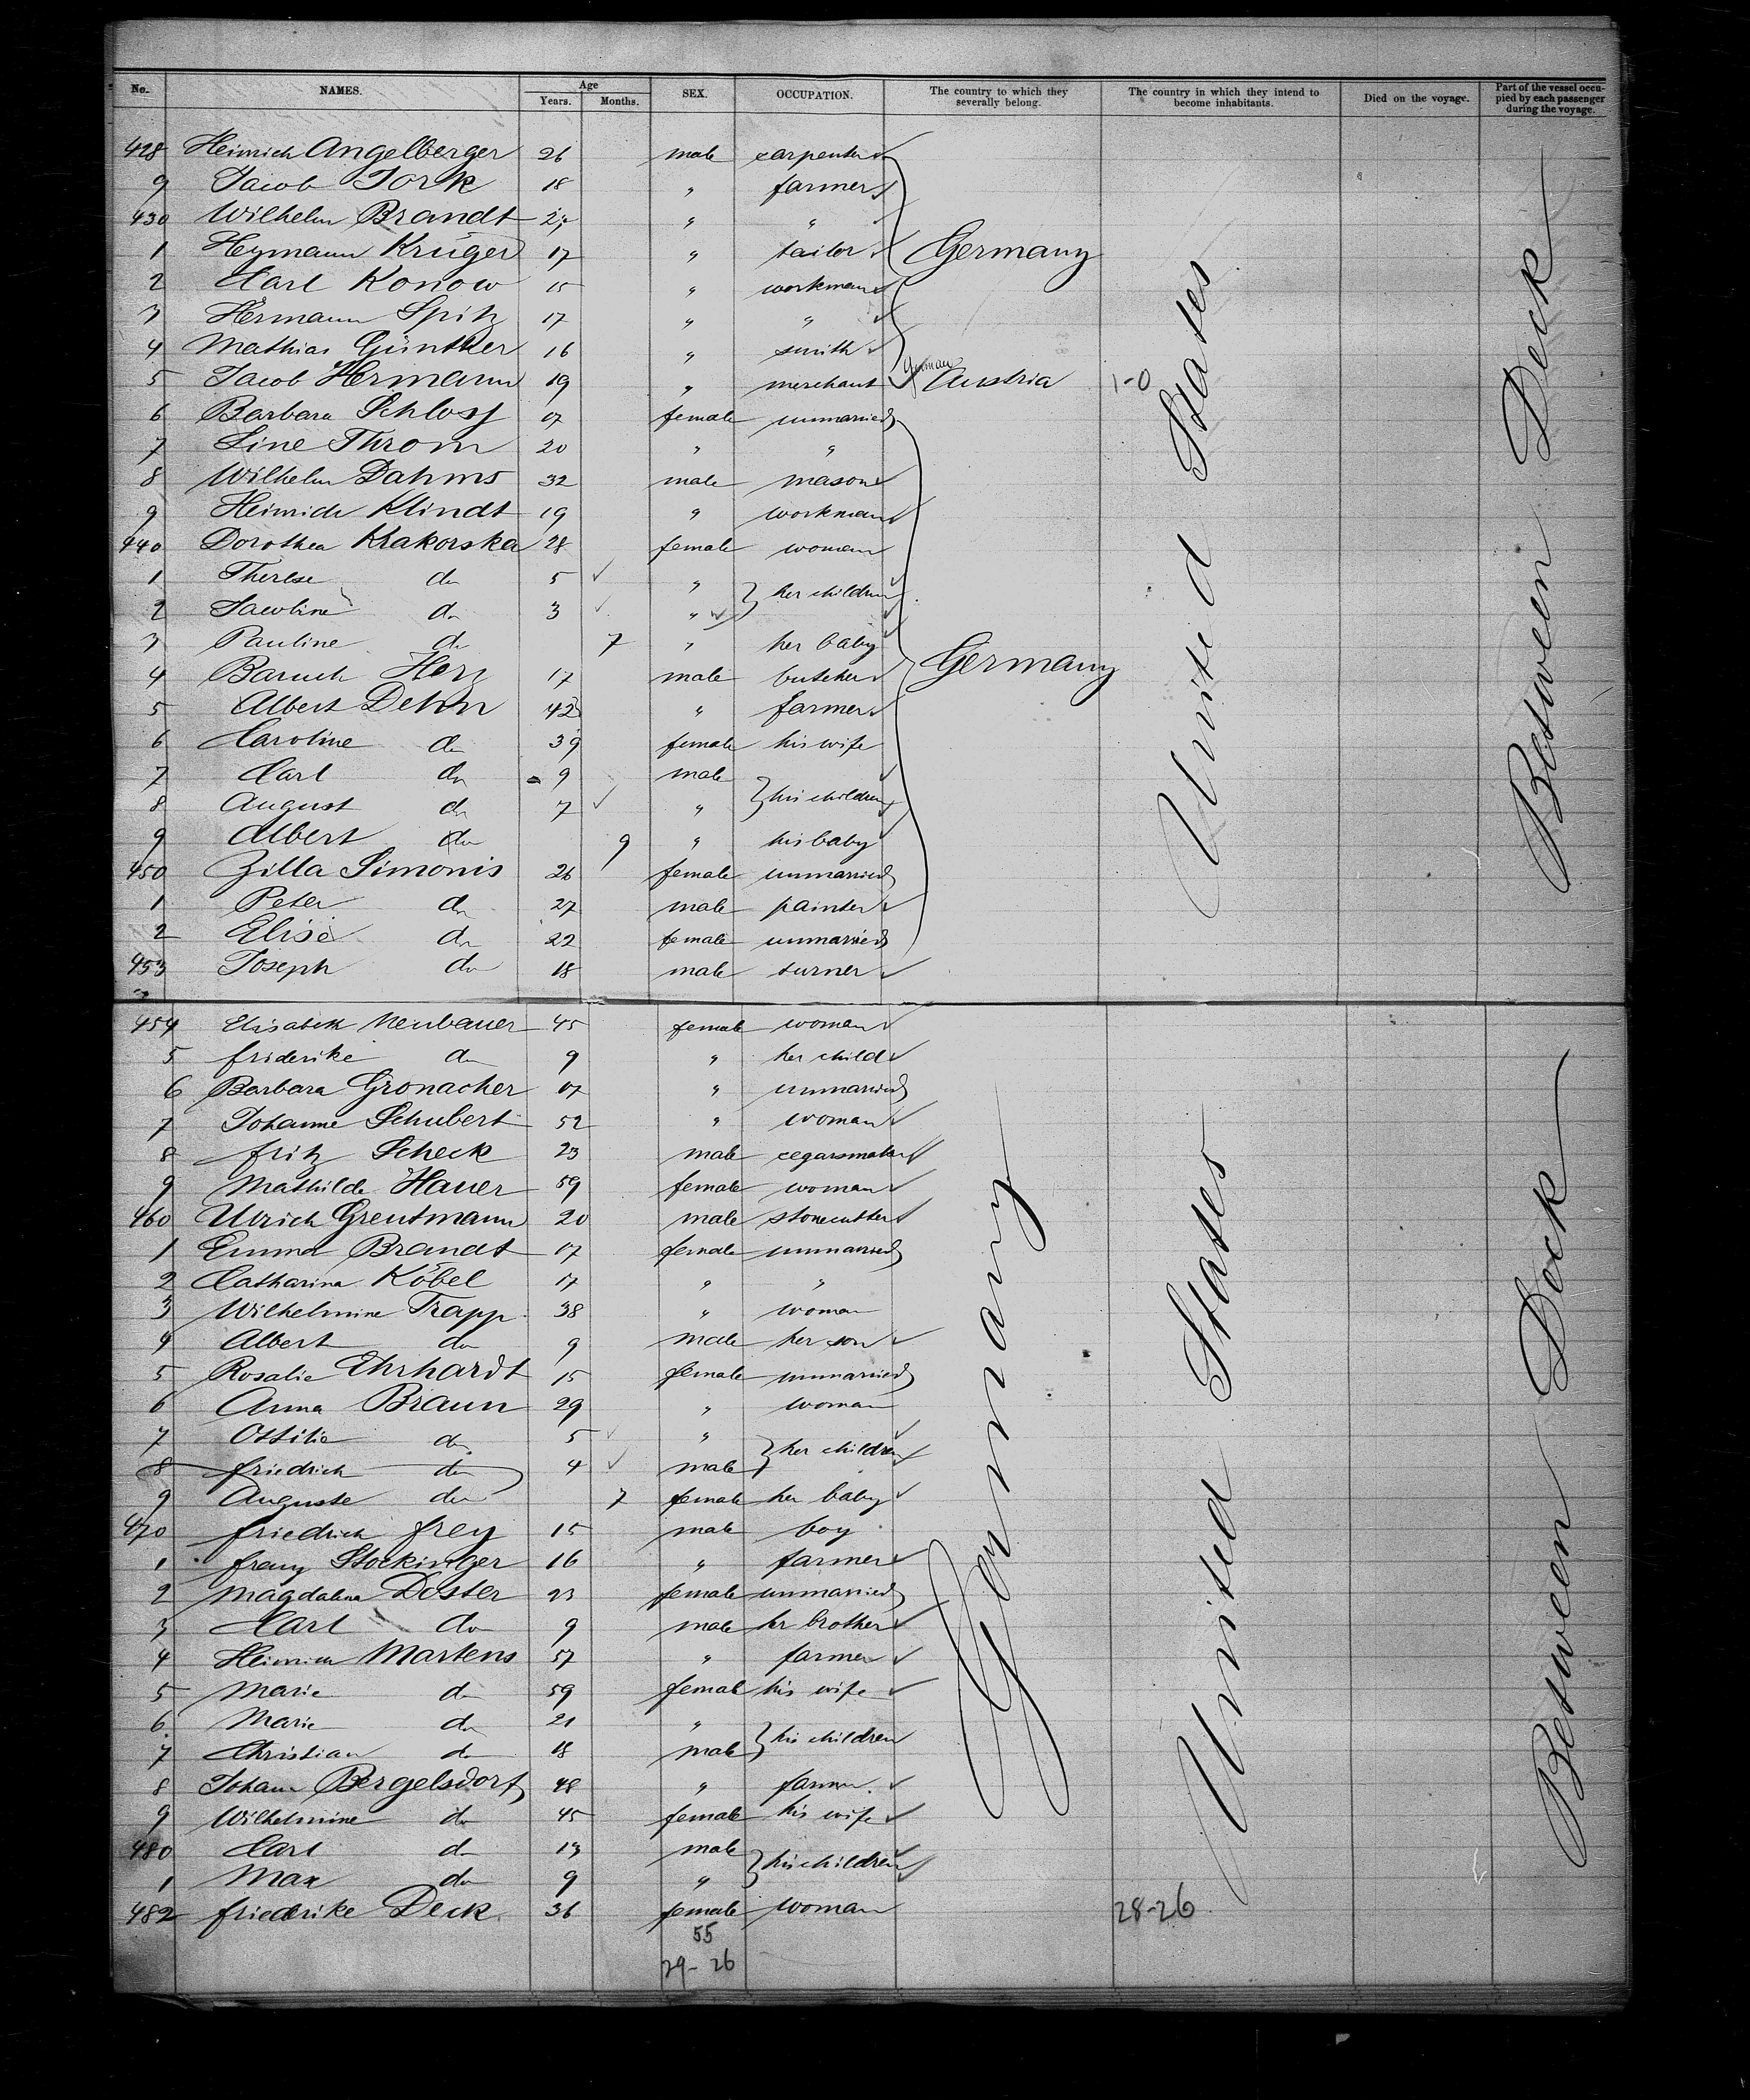 No. NAMES. Age Years. Months. SEX. OCCUPATION. The country to which they severally belong. The country in which they intend to become inhabitants. Died on the voyage. Part of the vessel occupied by each passenger during the voyage.
428 Heinrich Angelberger 26 male carpenter
9 Jacob Tork 18 " farmer
430 Wilhelm Brandt " "
1 Heymann Krüger 17 " tailor Germany
2 Carl Konow 15 " workman
3 Hermann Spitz 17 " "
4 Mathias Günther 16 " smith
5 Jacob Hermann 19 " merchant German Austria 1-0
6 Barbara Schloss 07 female unmarried
7 Line Throm 20 " "
8 Wilhelm Dahms 32 male mason
9 Heinrich Klindt 19 " workman
440 Dorothea Krakorska 28 female woman
1 Therese do 5 " her children
2 Jacobine do 3 "
3 Pauline do 7 " her baby
4 Baruch Herz 17 male butcher Germany
5 Albert Dehn 42 " farmer
6 Caroline do 39 female his wife
7 Carl do 9 male his children
8 August do 7 "
9 Albert do 9 " his baby
450 Zilla Simonis 26 female unmarried
1 Peter do 27 male painter
2 Elise do 22 female unmarried
453 Joseph do 18 male turner
United States
Between Deck
454 Elisabeth Neubauer 45 female woman
5 friderike do 9 " her child
6 Barbara Gronacher 07 " unmarried
7 Johanne Schubert 52 " woman
8 fritz Scheck 23 male cegarsmaker
9 Mathilde Hauer 59 female woman
460 Ulrich Greutmann 20 male stonecutter
1 Emma Brandt 07 female unmarried
2 Catharina Köbel 17 " "
3 Wilhelmine Trapp 38 " woman
4 Albert do 9 male her son
5 Rosalie Ehrhardt 15 female unmarried
6 Anna Braun 29 " woman
7 Ottilie do 5 " her children
8 friedrich do 4 male
9 Auguste do 7 female her baby
470 friedrich frey 15 male boy
1 franz Stockinger 16 " farmer
2 Magdalena Doster 23 female unmarried
3 Carl do 9 male her brother
4 Heinrich Martens 57 " farmer
5 Marie do 59 female his wife
6 Marie do 21 " his children
7 Christian do 18 male
8 Johann Bergelsdorf 48 " farmer
9 Wilhelmine do 45 female his wife
480 Carl do 13 male his children
1 Max do 9 "
482 friederike Deck 36 female woman 28-26
Germany
United States
Between Deck
55
29-26